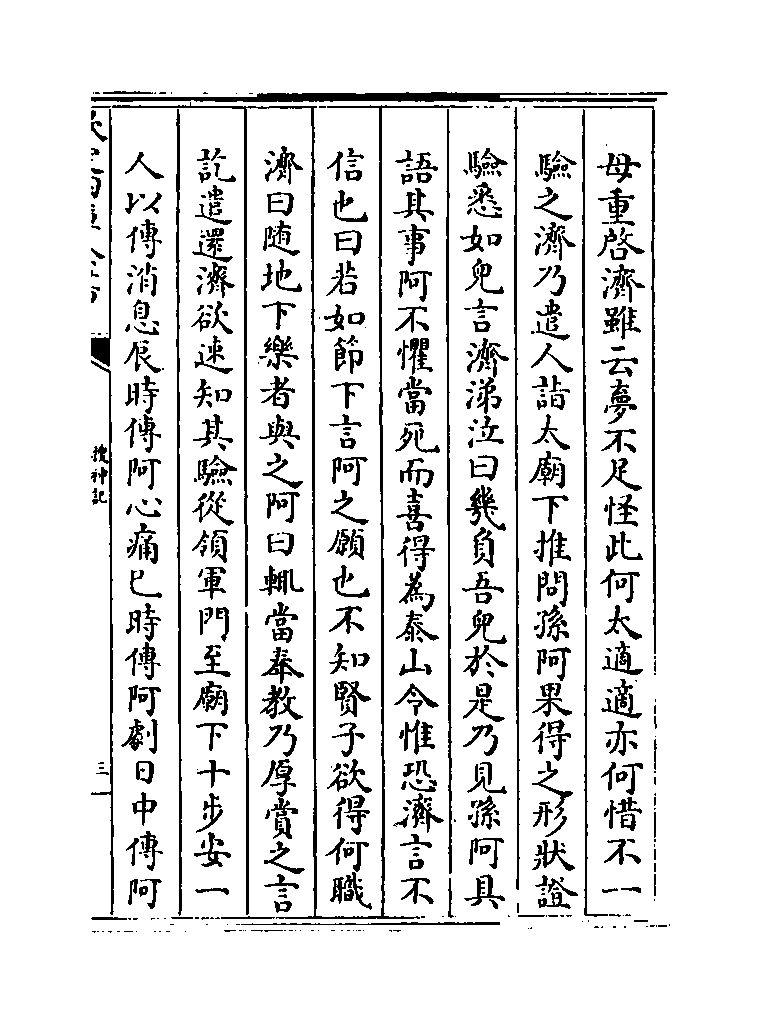 母重啓濟雖云夢不足怪此何太適適亦何惜不一
驗之濟乃遣人詣太廟下推問孫阿果得之形狀證
驗悉如兒言濟涕泣曰幾負吾兒於是乃見孫阿具
語其事阿不懼當死而喜得為泰山令惟恐濟言不
信也曰若如節下言阿之願也不知賢子欲得何職
濟曰随地下樂者與之阿曰輒當奉教乃厚賞之言
訖遣還濟欲速知其驗從領軍門至廟下十步安一
人以傳消息辰時傳阿心痛巳時傳阿劇日中傳阿
搜神記
三